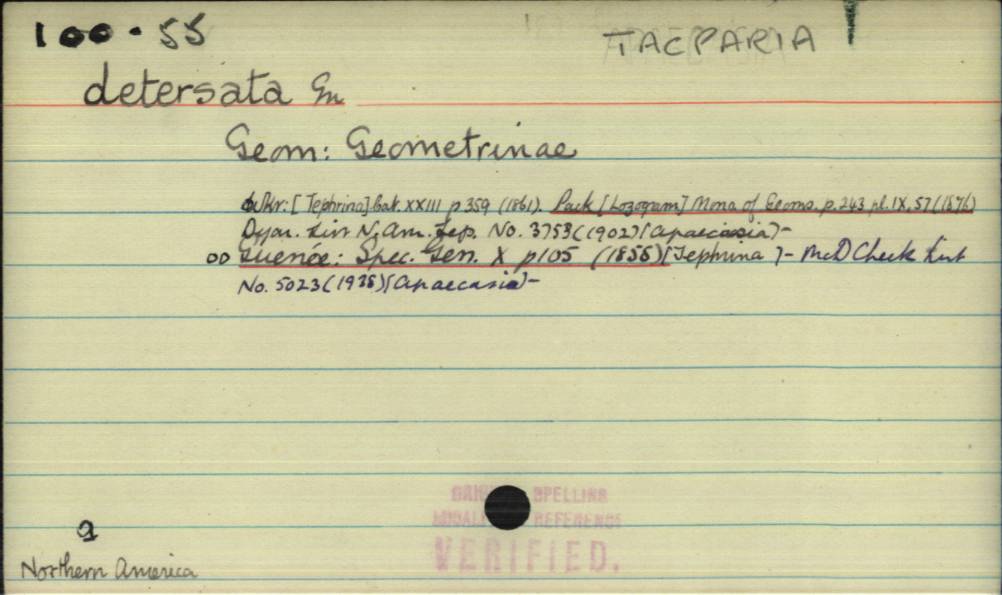 100.55
TACPARIA
detersata Gn
Geom: Geometrinae
Wkr: [Tephrina] Cat. XXIII p 359 (1861). Pack [Lozogram] Mono of Geoms. p. 243 pl. IX, 57 (1876)
Dyar. List N. Am. Lep. No. 3753 (1902) [Apaecasia] -
Guenée: Spec. Gen. X p105 (1858) [Tephrina] - McD Check List
No. 5023 (1938) [Apaecasia] -
SPELLING
REFERENCE
VERIFIED.
a
Northern America